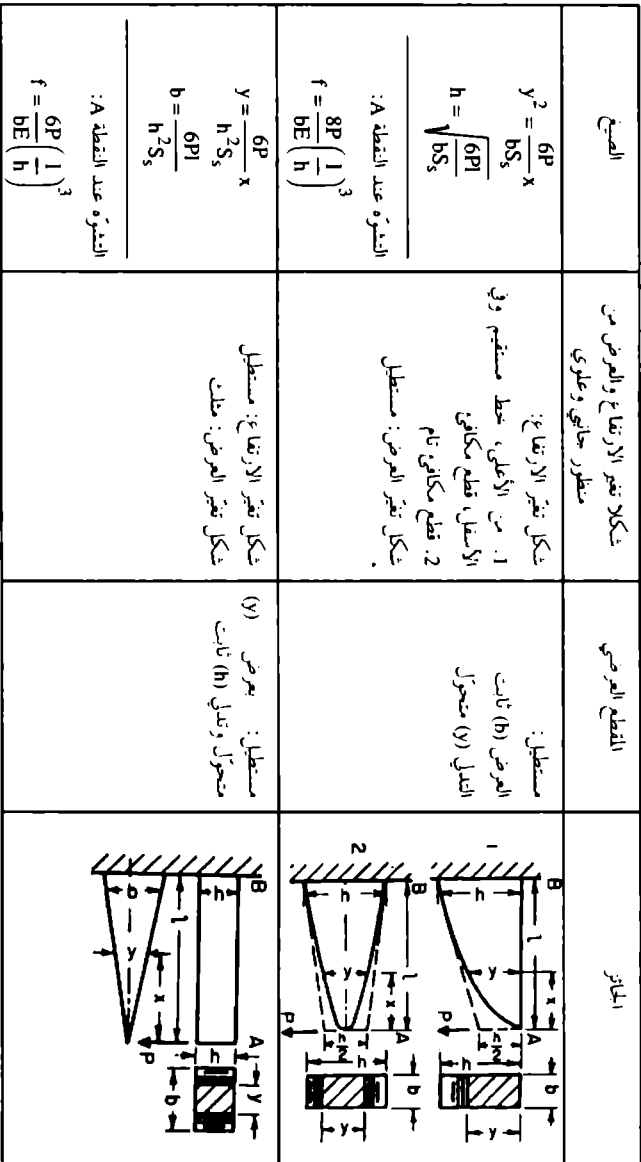 الجائز
المقطع العرضي
شكلا تغير الارتفاع والعرض من
منظور جانبي وعلوي
الصيغ
1
B
l
x
A
h
y
h/2
P
h
b
y
2
l
x
A
h
y
h/2
P
h
b
y
مستطيل:
العرض (b) ثابت
التدلي (y) متحوّل
شكل تغيّر الارتفاع:
1. من الأعلى، خط مستقيم وفي
الأسفل، قطع مكافئ
2. قطع مكافئ تام
شكل تغيّر العرض: مستطيل
y² = 6P/bSₛ x
h = √(6Pl/bSₛ)
التشوّه عند النقطة A:
f = 8P/bE (l/h)³
B
A
h
l
b
y
x
P
h
b
y
مستطيل: بعرض (y)
متحوّل وتدلي (h) ثابت
شكل تغيّر الارتفاع: مستطيل
شكل تغيّر العرض: مثلث
y = 6P/h²Sₛ x
b = 6Pl/h²Sₛ
التشوّه عند النقطة A:
f = 6P/bE (l/h)³